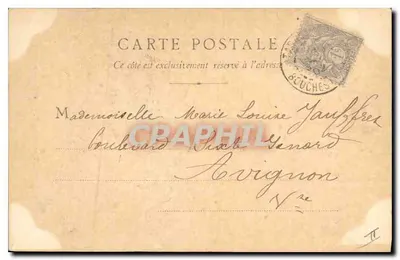 CARTE POSTALE
Ce côté est exclusivement réservé à l'adresse
BOUCHES
Mademoiselle Marie Louise Jauffret
boulevard Sixte Isnard
Avignon
Vse
CPARHIF